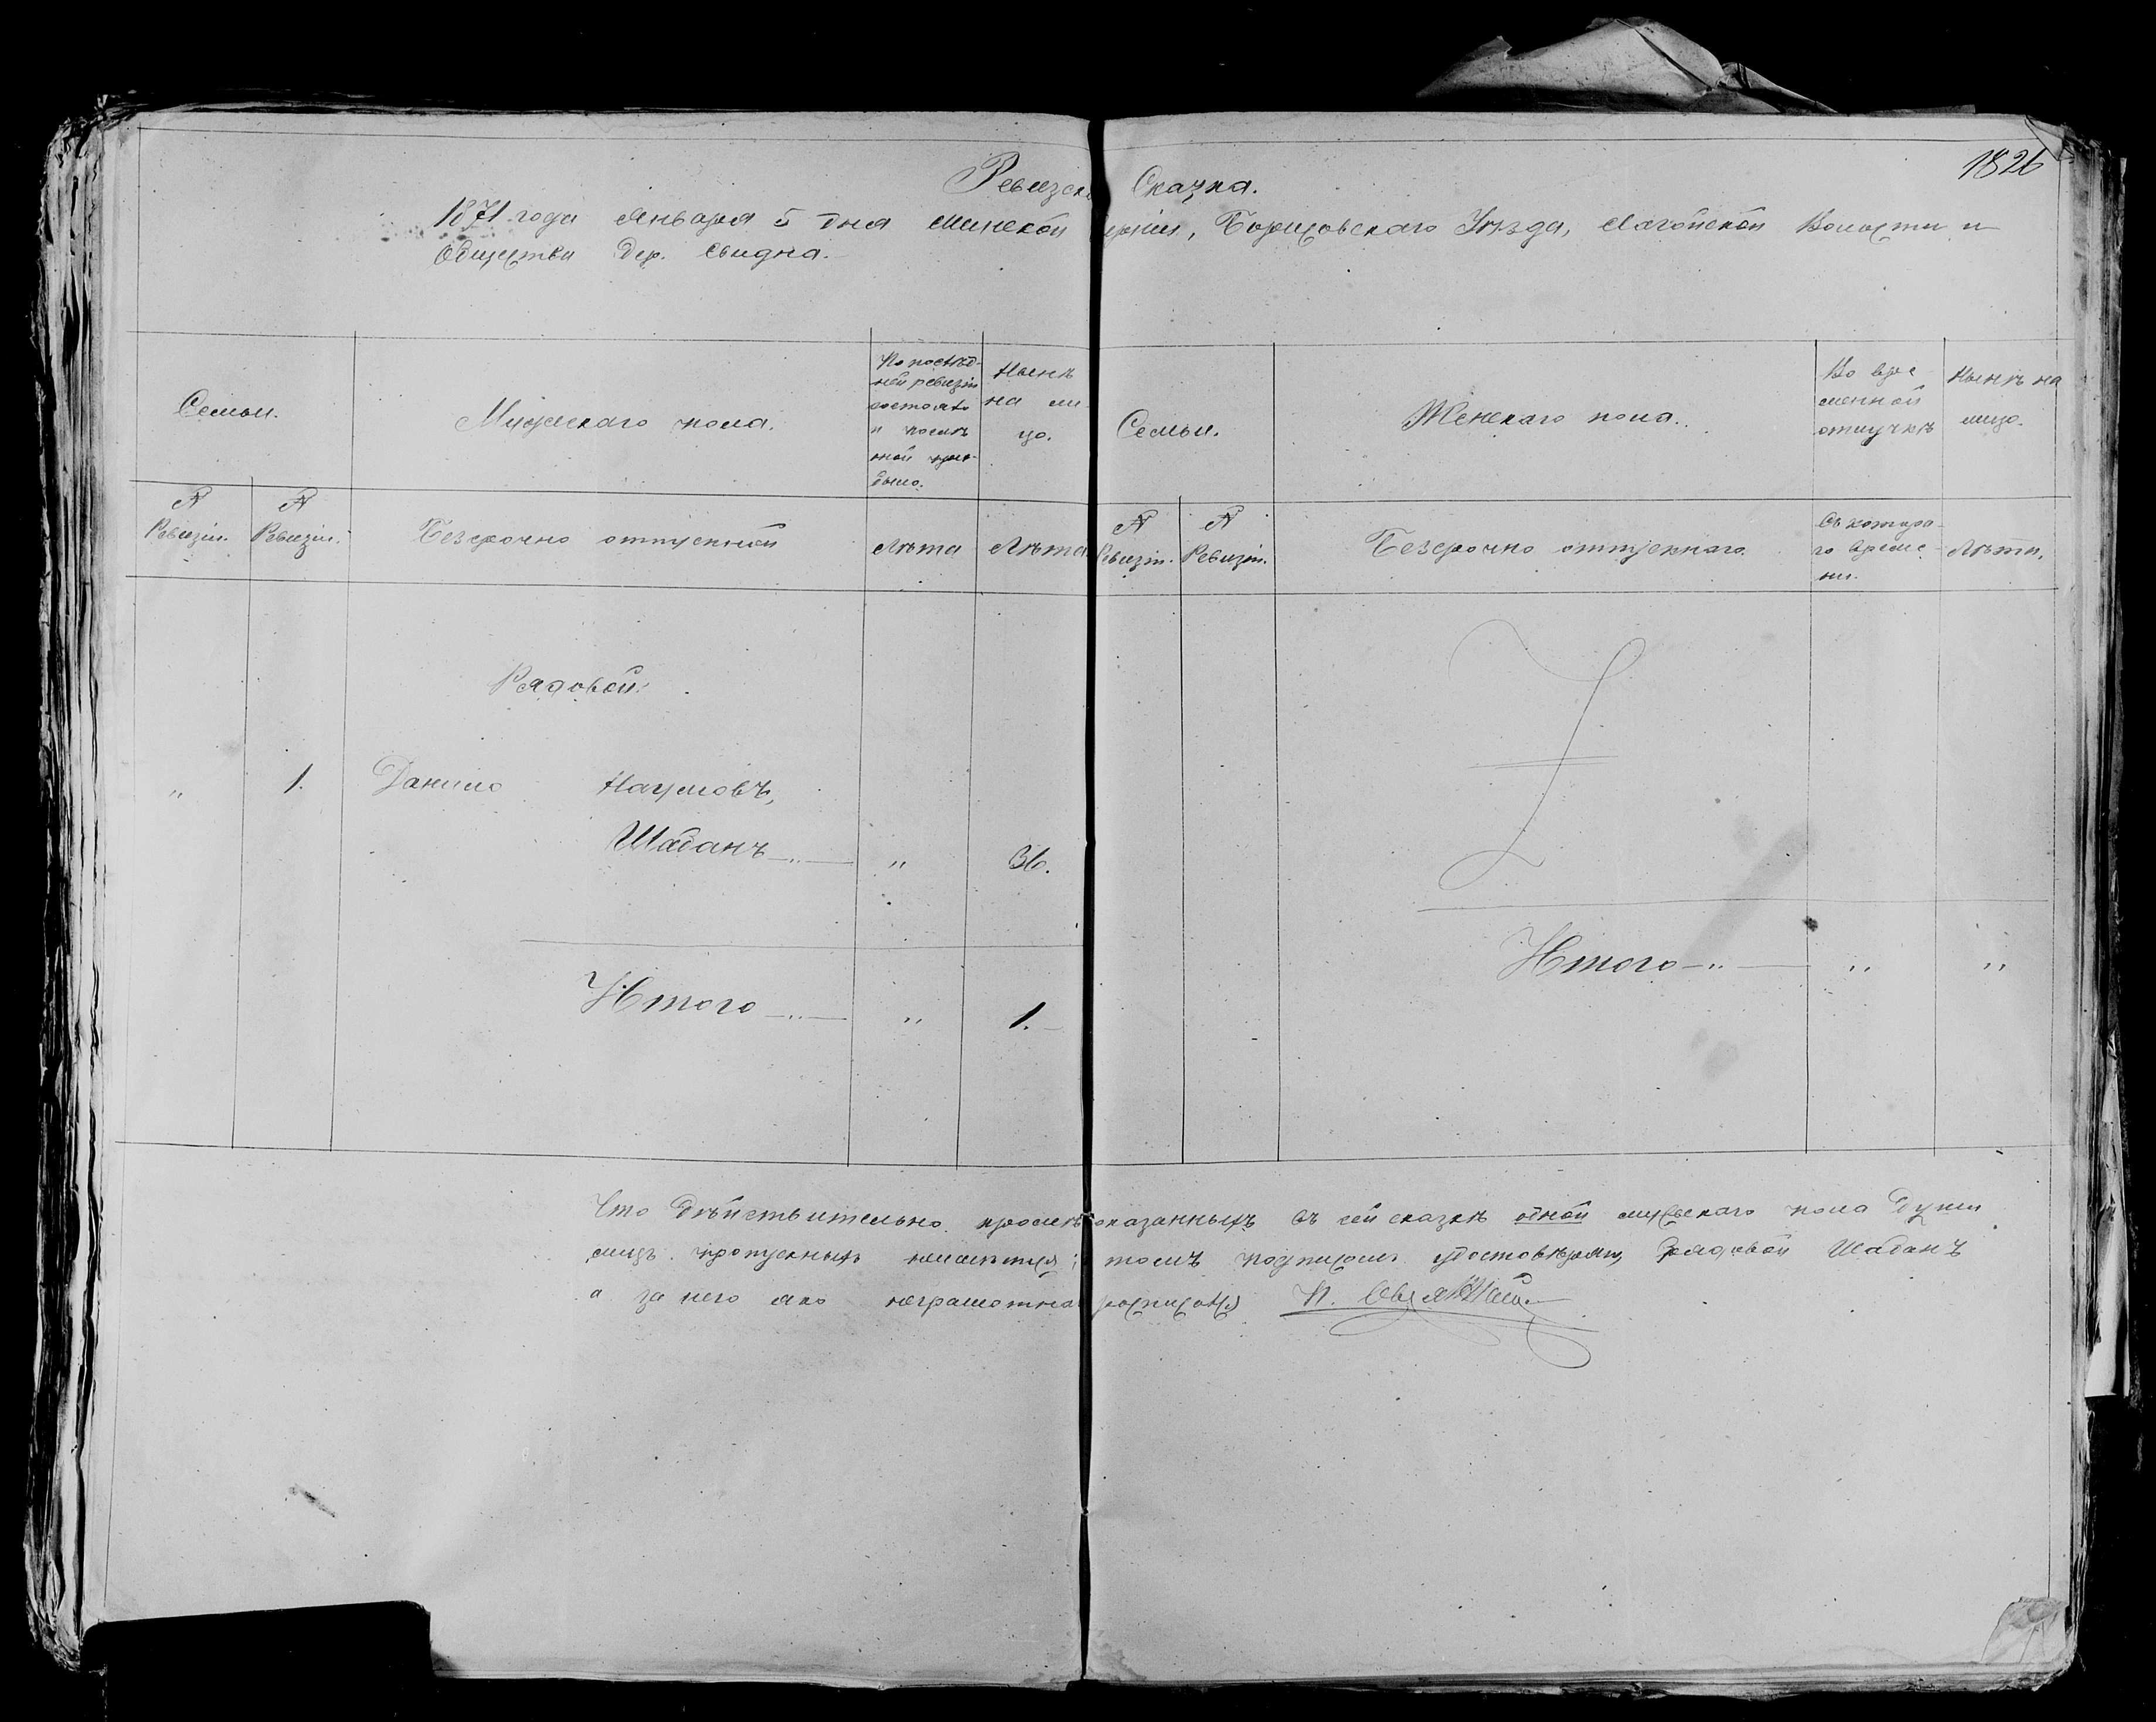 1826
Ревизск Сказка.
1871 года Января 5 дня Минской ерніи, Борисовскаго Уѣзда, Лагойской Волости и
Общества Дер. Свидна.
Семьи.
Мужескаго пола.
По послѣд-
ней ревизіи
состояло
и послѣ
оной при-
было.
Нынѣ
на ли-
цо.
Семьи.
Женскаго пола.
Во вре
менной
отлучкѣ
Нынѣ на
лицо.
№
Ревизіи.
№
Ревизіи.
Безсрочно отпускной
Лѣта
Лѣта
№
Ревизіи.
№
Ревизіи.
Безсрочно отпускнаго
Съ котора-
го време-
ни.
Лѣта.
Рядовой
" 1. Данило Наумовъ,
Шабанъ " 36.
Итого " 1.
Итого " "
Что дѣйствительно кромѣ показанныхъ въ сей сказкѣ одной мужескаго пола души
лицъ пропускныхъ томъ подписомъ удостовѣряю, рядовой Шабанъ
а за него яко неграмотна росписался